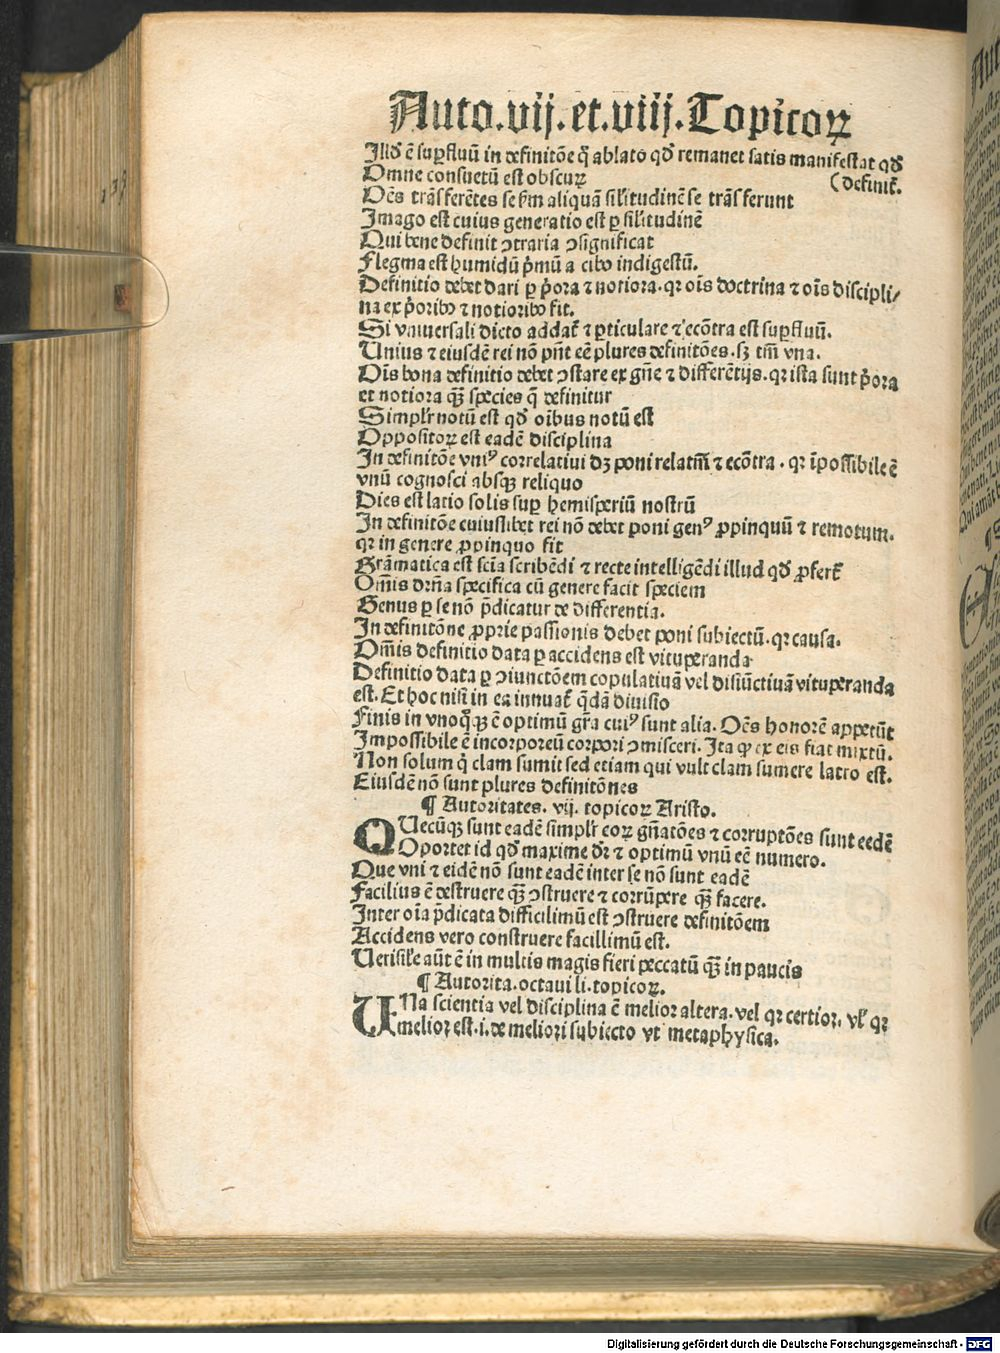 Auto.vij.et.viij.Topicoꝝ
Illđ ē suꝑfluū in definitōe q̊ ablato qđ remanet satis manifestat qđ
Omne consuetū est obscuꝝ (definit̄.
Oēs trāsferētes se ẜm aliquā sil'itudinē se trāsferunt
Imago est cuius generatio est ꝑ sil'itudinē
Qui bene definit ↄtraria ↄsignificat
Flegma est humidū p̄mū a cibo indigestū.
Definitio debet dari ꝑ p̄ora ⁊ notiora. qꝛ oīs doctrina ⁊ oīs discipli/
na ex p̄oribꝰ ⁊ notioribꝰ fit.
Si vniuersali dicto addat̄ ⁊ ꝑticulare ⁊ ecōtra est suꝑfluū.
Unius ⁊ eiusdē rei nō pn̄t eē plures definitōes. sꝫ tm̄ vna.
Oīs bona definitio debet ↄstare ex gn̄e ⁊ differētijs. qꝛ ista sunt p̄ora
et notiora qꝫ̄ species q̄ definitur
Simpl'r notū est qđ oībus notū est
Oppositoꝝ est eadē disciplina
In definitōe vniꝰ correlatiui dꝫ poni relatm̄ ⁊ ecōtra. qꝛ īpossibile ē
vnū cognosci absqꝫ reliquo
Dies est latio solis suꝑ hemisperiū nostrū
In definitōe cuiuslibet rei nō debet poni genꝰ ꝓpinquū ⁊ remotum.
qꝛ in genere ꝓpinquo fit
Grāmatica est scīa scribēdi ⁊ recte intelligēdi illud qđ ꝓfert̄
Om̄is dr̄na specifica cū genere facit speciem
Genus ꝑ se nō p̄dicatur de differentia.
In definitōne ꝓprie passionis debet poni subiectū. qꝛ causa.
Om̄is definitio data ꝑ accidens est vituperanda
Definitio data ꝑ ↄiunctōem copulatiuā vel disiūctiuā vituperanda
est. Et hoc nisi in ea innuat̄ q̄dā diuisio
Finis in vnoq̊qꝫ ē optimū gr̄a cuiꝰ sunt alia. Oēs honorē appetūt
Impossibile ē incorporeū corpori ↄmisceri. Ita ꝙ ex eis fiat mixtū.
Non solum q̇ clam sumit sed etiam qui vult clam sumere latro est.
Eiusdē nō sunt plures definitōnes
¶ Autoritates. vij. topicoꝝ Aristo.
QUecūqꝫ sunt eadē simpl'r eoꝝ gn̄atōes ⁊ corruptōes sunt eedē
Oportet id qđ maxime dr̄ ⁊ optimū vnū eē numero.
Que vni ⁊ eidē nō sunt eadē inter se nō sunt eadē
Facilius ē destruere qꝫ̄ ↄstruere ⁊ corrūpere qꝫ̄ facere.
Inter oīa p̄dicata difficilimū est ↄstruere definitōem
Accidens vero construere facillimū est.
Uerisil'e aūt ē in multis magis fieri peccatū qꝫ̄ in paucis
¶ Autorita. octaui li. topicoꝝ.
UNa scientia vel disciplina ē melior altera. vel qꝛ certior. vl' qꝛ
melior est. i. de meliori subiecto vt metaphysica.
Digitalisierung gefördert durch die Deutsche Forschungsgemeinschaft - DFG